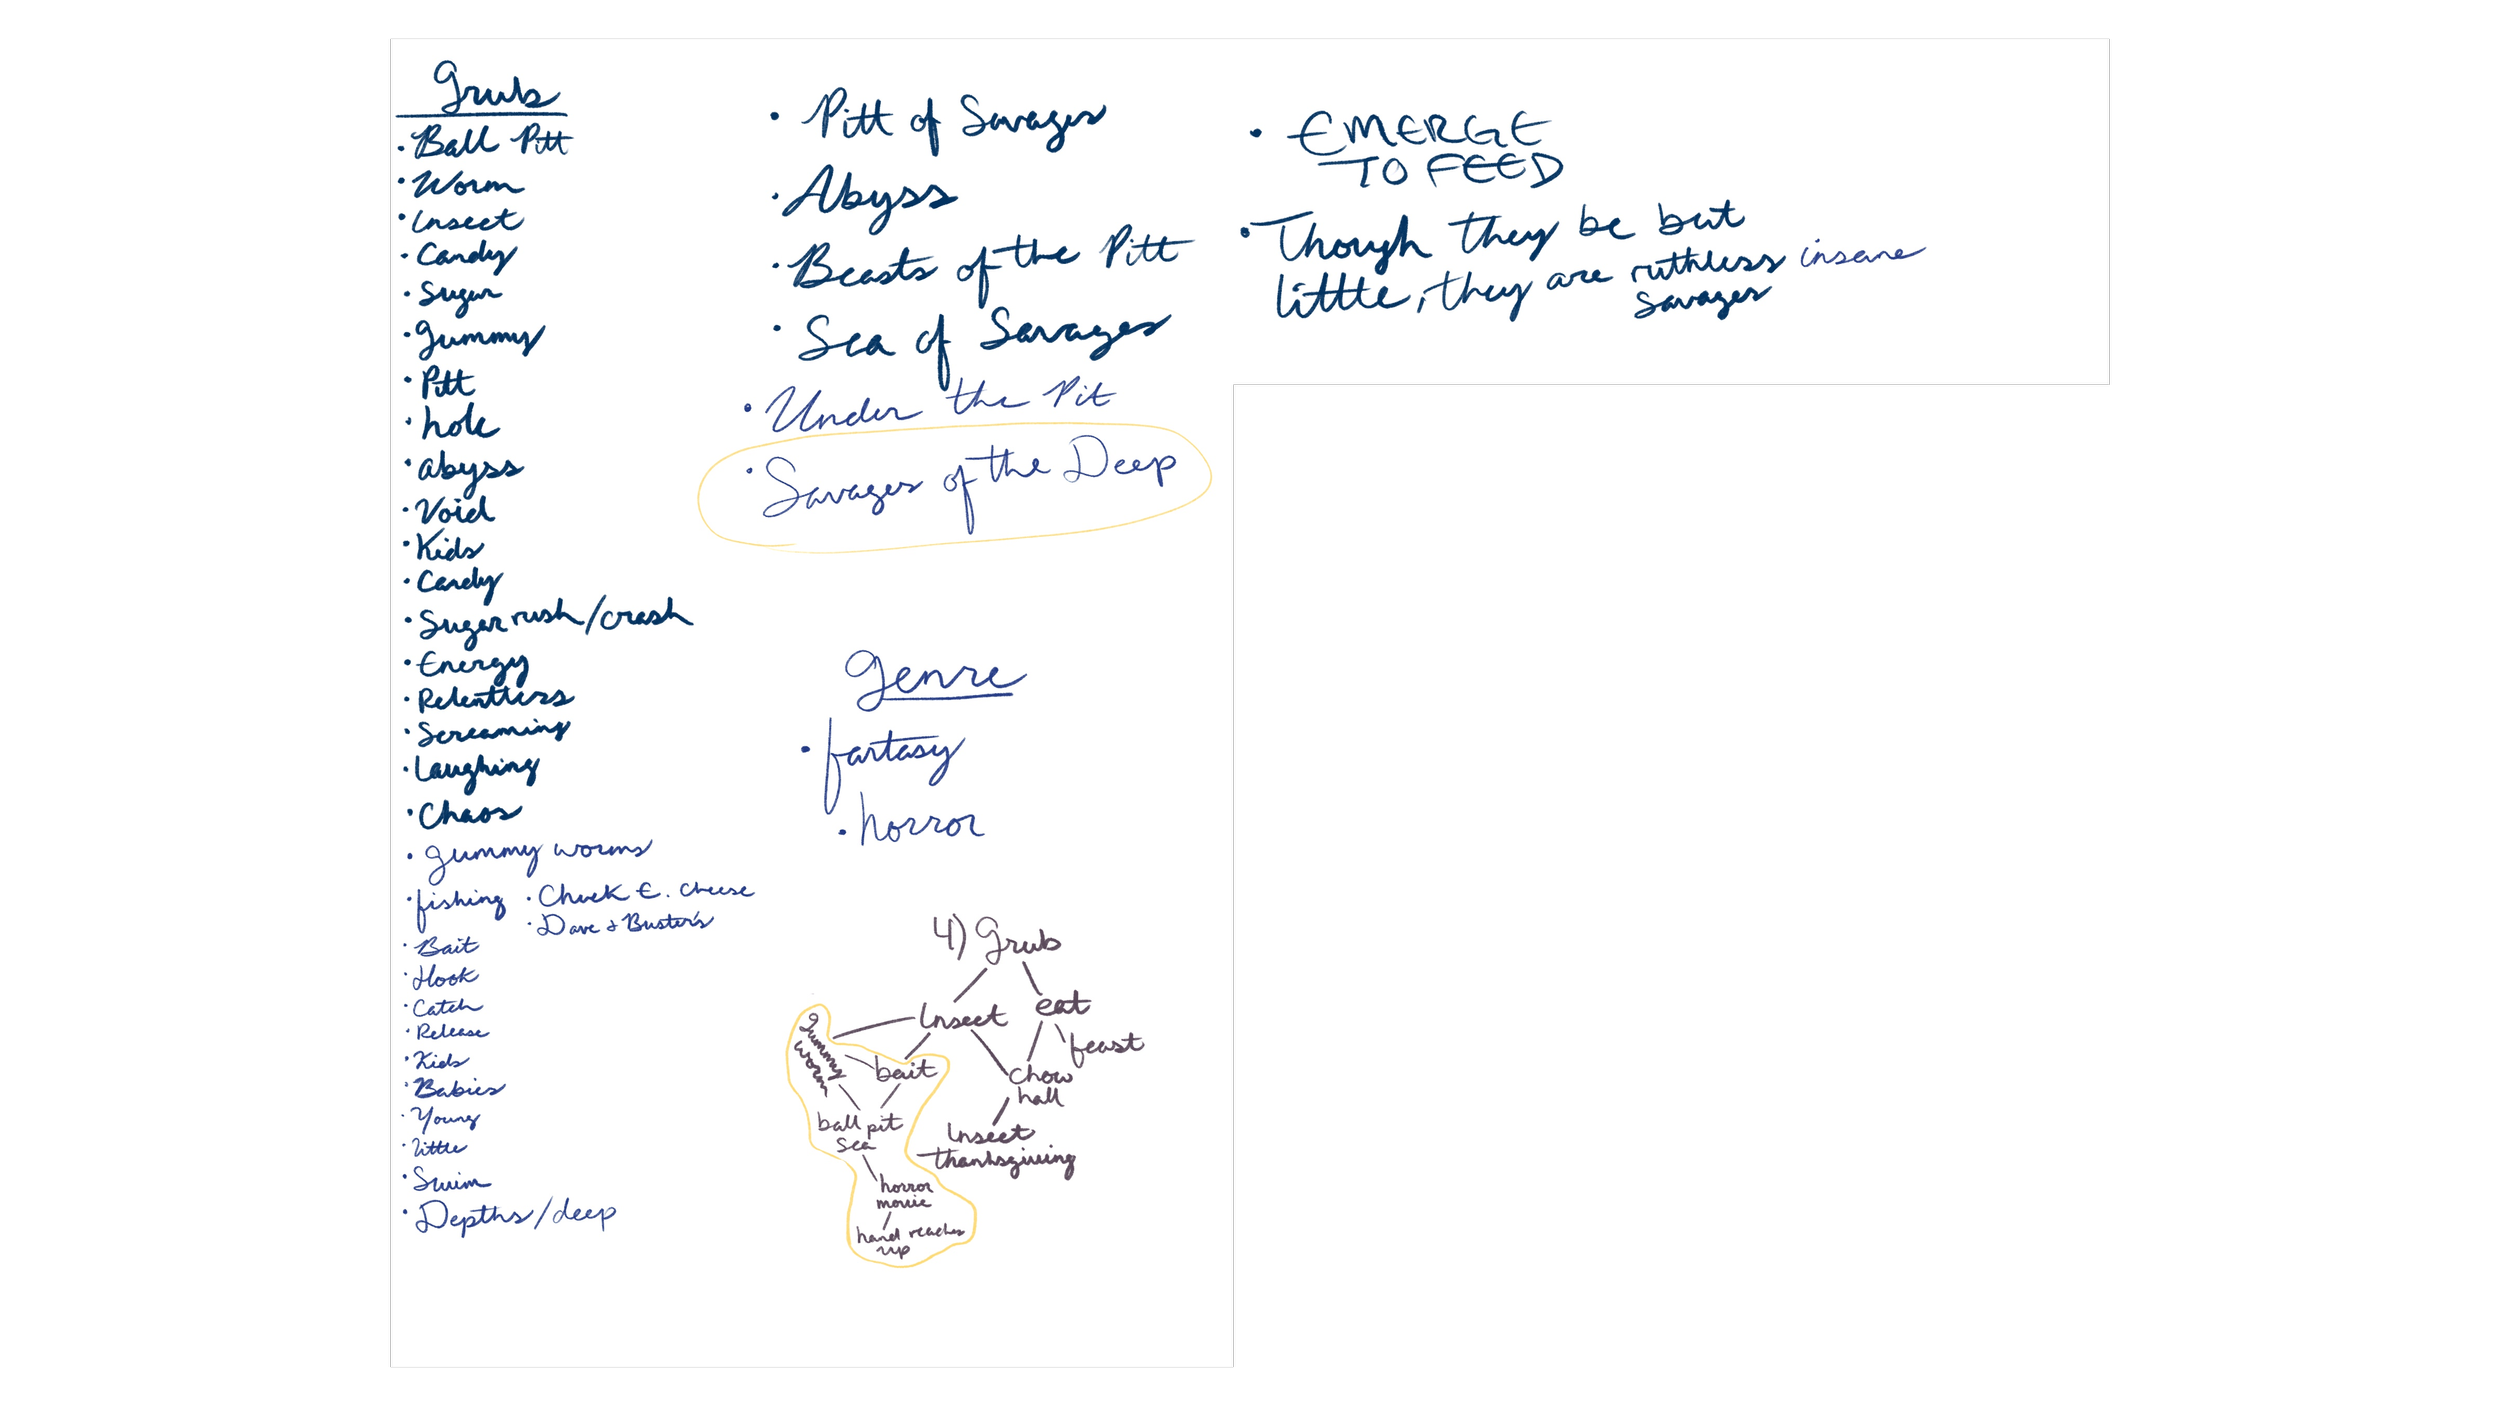 Grub
• Ball Pitt
• Worm
• Insect
• Candy
• Sugar
• Gummy
• Pitt
• hole
• abyss
• Void
• Kids
• Candy
• Sugar rush/crash
• Energy
• Relentless
• Screaming
• Laughing
• Chaos
• Gummy worms
• fishing
• Chuck E. Cheese
• Dave & Buster's
• Bait
• Hook
• Catch
• Release
• Kids
• Babies
• Young
• little
• Swim
• Depths/deep
• Pitt of Savages
• Abyss
• Beasts of the Pitt
• Sea of Savages
• Under the Pit
• Savages of the Deep
Genre
• fantasy
• horror
4) Grub
Insect
eat
feast
gummy
worm
bait
chow
hall
ball pit
sea
Insect
thanksgiving
horror
movie
hand reaches
up
• EMERGE
TO FEED
• Though they be but
little, they are ruthless insane
savages